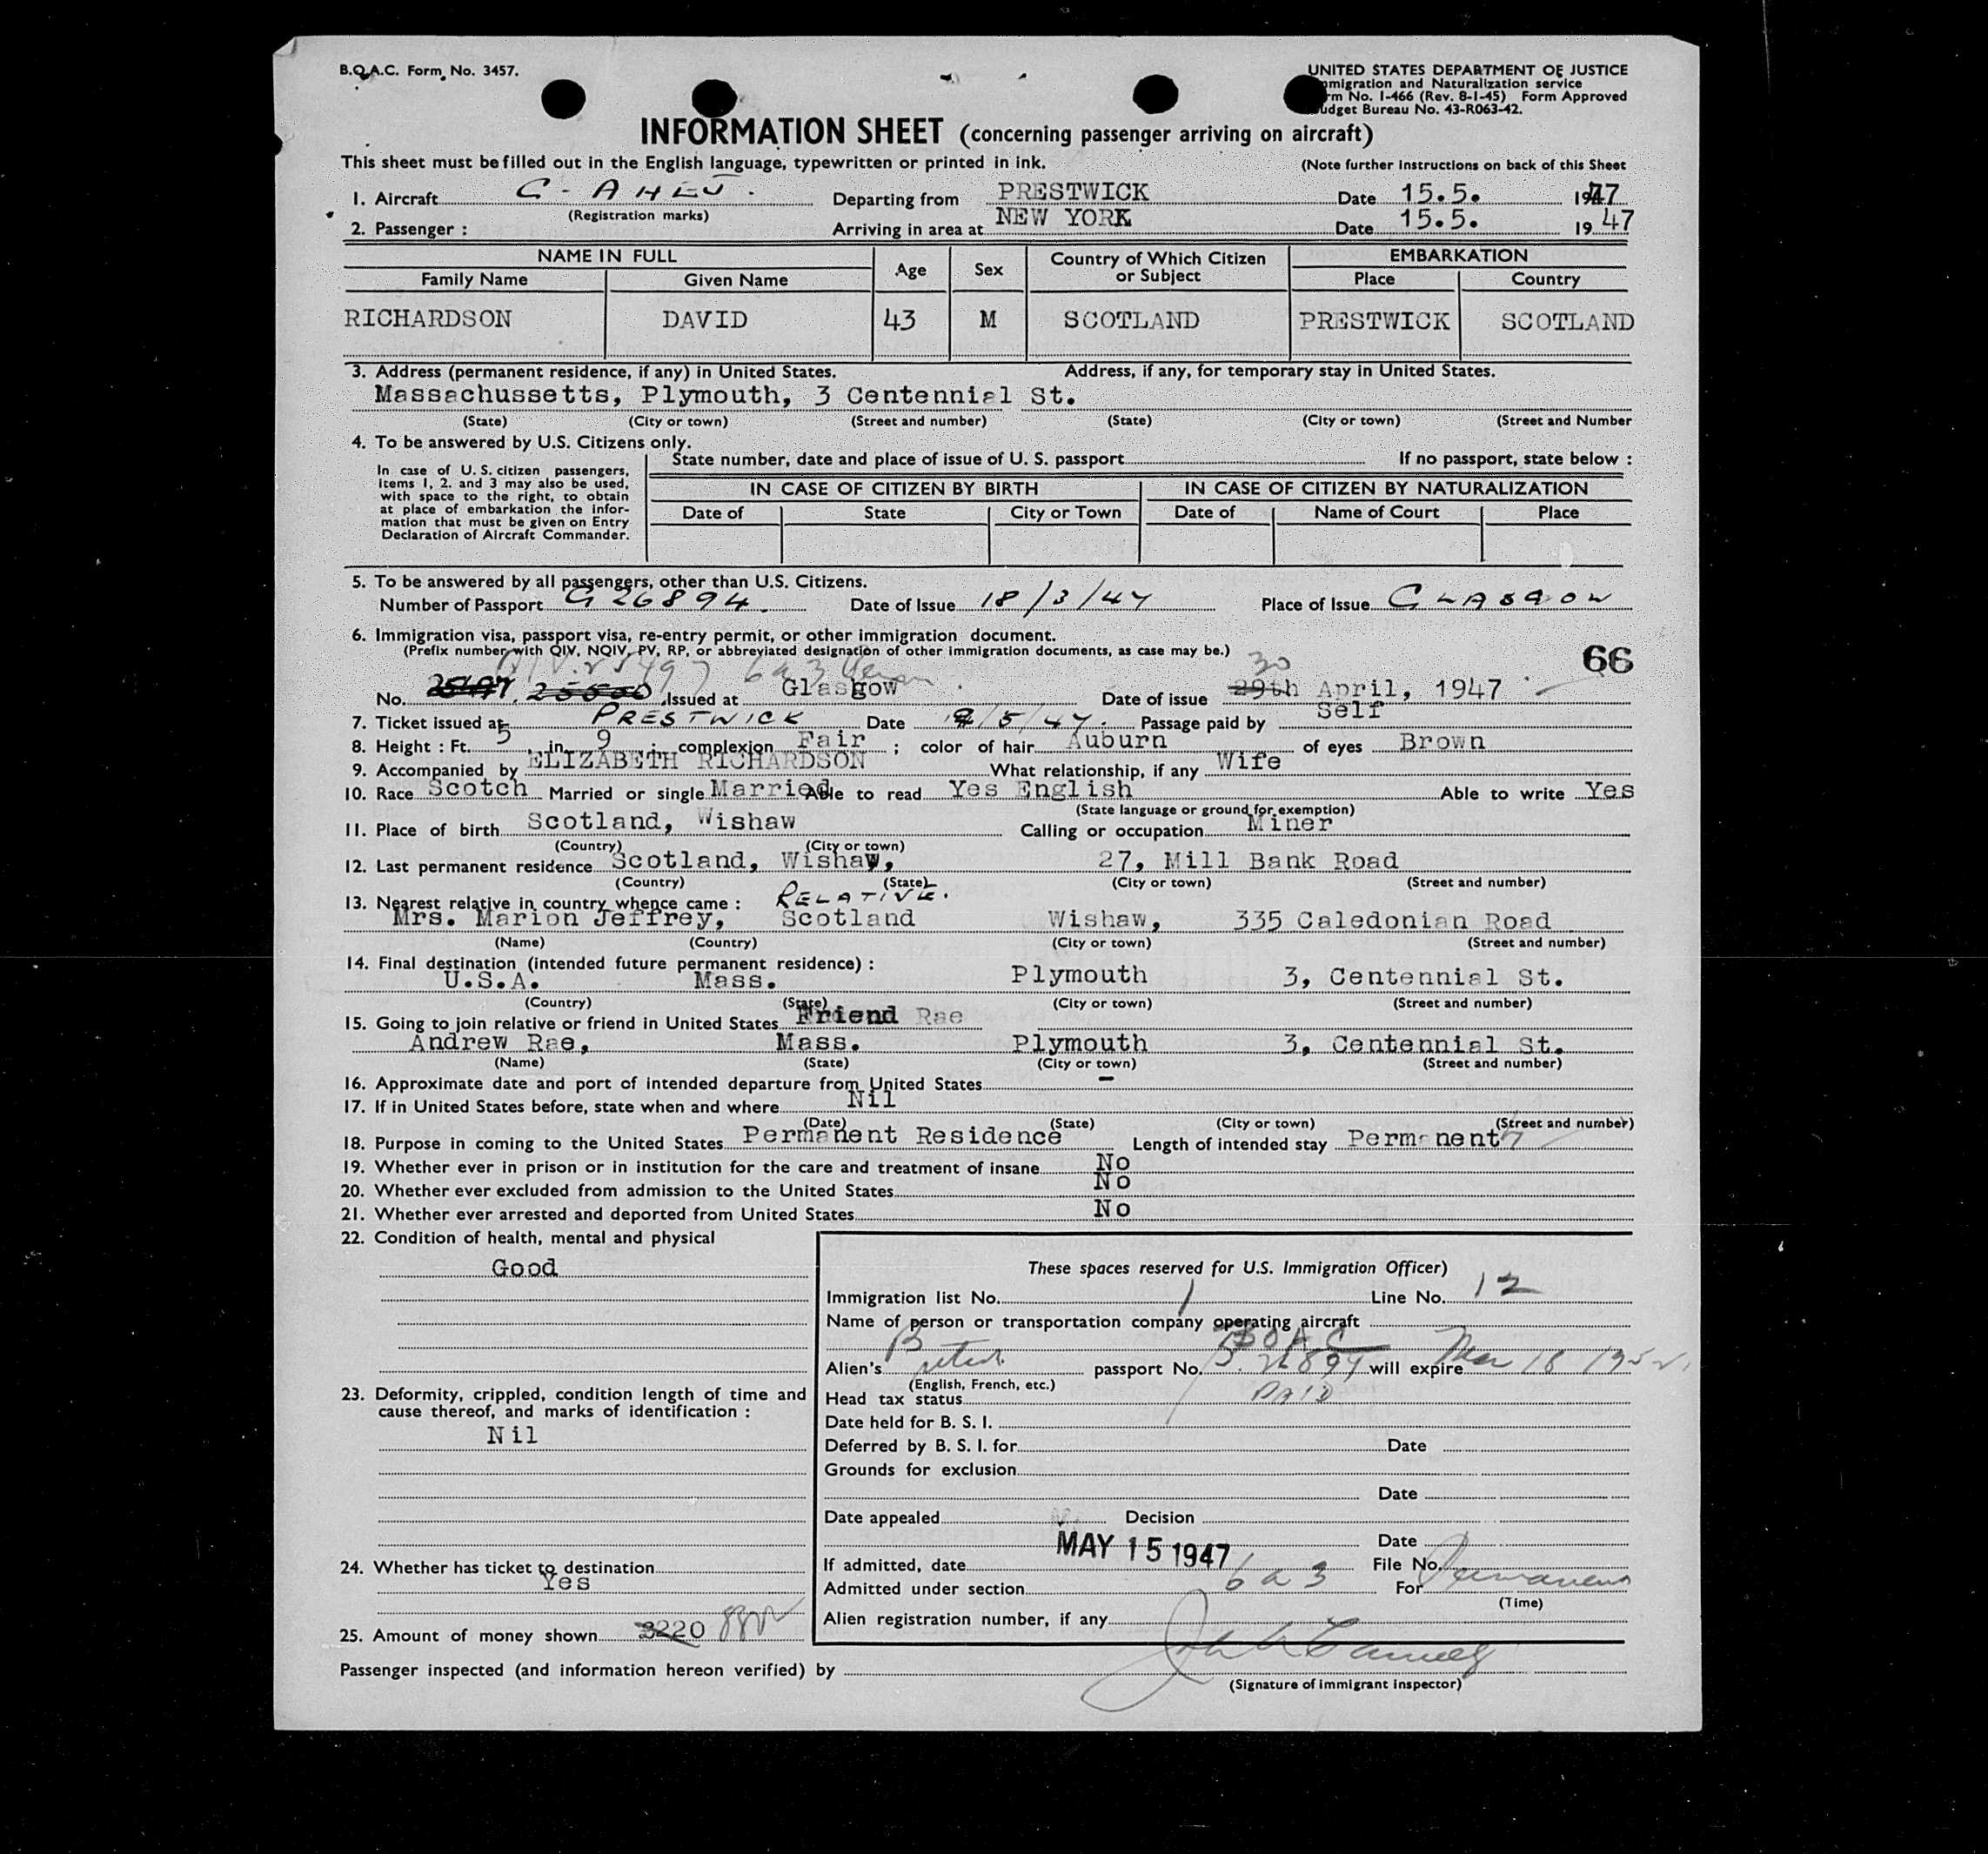 B.O.A.C. Form No. 3457.
UNITED STATES DEPARTMENT OF JUSTICE
mmigration and Naturalization service
rm No. I-466 (Rev. 8-1-45) Form Approved
udget Bureau No. 43-R063-42.
INFORMATION SHEET (concerning passenger arriving on aircraft)
This sheet must be filled out in the English language, typewritten or printed in ink. (Note further instructions on back of this Sheet
1. Aircraft G-AHEJ. Departing from PRESTWICK Date 15.5. 1947
(Registration marks)
2. Passenger : Arriving in area at NEW YORK Date 15.5. 19 47
NAME IN FULL Age Sex Country of Which Citizen or Subject EMBARKATION
Family Name Given Name Place Country
RICHARDSON DAVID 43 M SCOTLAND PRESTWICK SCOTLAND
3. Address (permanent residence, if any) in United States. Address, if any, for temporary stay in United States.
Massachussetts, Plymouth, 3 Centennial St.
(State) (City or town) (Street and number) (State) (City or town) (Street and Number
4. To be answered by U.S. Citizens only.
In case of U.S. citizen passengers,
items 1, 2. and 3 may also be used,
with space to the right, to obtain
at place of embarkation the infor-
mation that must be given on Entry
Declaration of Aircraft Commander.
State number, date and place of issue of U. S. passport If no passport, state below :
IN CASE OF CITIZEN BY BIRTH IN CASE OF CITIZEN BY NATURALIZATION
Date of State City or Town Date of Name of Court Place
5. To be answered by all passengers, other than U.S. Citizens.
Number of Passport G 26894. Date of Issue 18/3/47 Place of Issue GLASGOW
6. Immigration visa, passport visa, re-entry permit, or other immigration document.
(Prefix number with QIV, NQIV, PV, RP, or abbreviated designation of other immigration documents, as case may be.)
66
25497 6a3 30
No. 25497. 25500 Issued at Glasgow Date of issue 29th April, 1947
7. Ticket issued at PRESTWICK Date /5/47. Passage paid by Self
8. Height : Ft. 5, in. 9 ; complexion Fair ; color of hair Auburn of eyes Brown
9. Accompanied by ELIZABETH RICHARDSON What relationship, if any Wife
10. Race Scotch Married or single Married Able to read Yes English Able to write Yes
(State language or ground for exemption)
11. Place of birth Scotland, Wishaw Calling or occupation Miner
(Country) (City or town)
12. Last permanent residence Scotland, Wishaw, 27, Mill Bank Road
(Country) (State) (City or town) (Street and number)
13. Nearest relative in country whence came : RELATIVE.
Mrs. Marion Jeffrey, Scotland Wishaw, 335 Caledonian Road
(Name) (Country) (City or town) (Street and number)
14. Final destination (intended future permanent residence) :
U.S.A. Mass. Plymouth 3, Centennial St.
(Country) (State) (City or town) (Street and number)
15. Going to join relative or friend in United States Friend Rae
Andrew Rae, Mass. Plymouth 3, Centennial St.
(Name) (State) (City or town) (Street and number)
16. Approximate date and port of intended departure from United States -
17. If in United States before, state when and where Nil
(Date) (State) (City or town) (Street and number)
18. Purpose in coming to the United States Permanent Residence Length of intended stay Permanent
19. Whether ever in prison or in institution for the care and treatment of insane No
20. Whether ever excluded from admission to the United States No
21. Whether ever arrested and deported from United States No
22. Condition of health, mental and physical
Good
23. Deformity, crippled, condition length of time and
cause thereof, and marks of identification :
Nil
24. Whether has ticket to destination
Yes
25. Amount of money shown 2220
These spaces reserved for U.S. Immigration Officer)
Immigration list No. 1 Line No. 12
Name of person or transportation company operating aircraft
BOAC
Alien's British passport No. 26894 will expire Mar 18 1952
(English, French, etc.)
Head tax status PAID
Date held for B. S. I.
Deferred by B. S. I. for Date
Grounds for exclusion
Date
Date appealed Decision
Date
If admitted, date MAY 15 1947 File No.
Admitted under section 6a3 For Permanent
(Time)
Alien registration number, if any
Passenger inspected (and information hereon verified) by
(Signature of immigrant inspector)